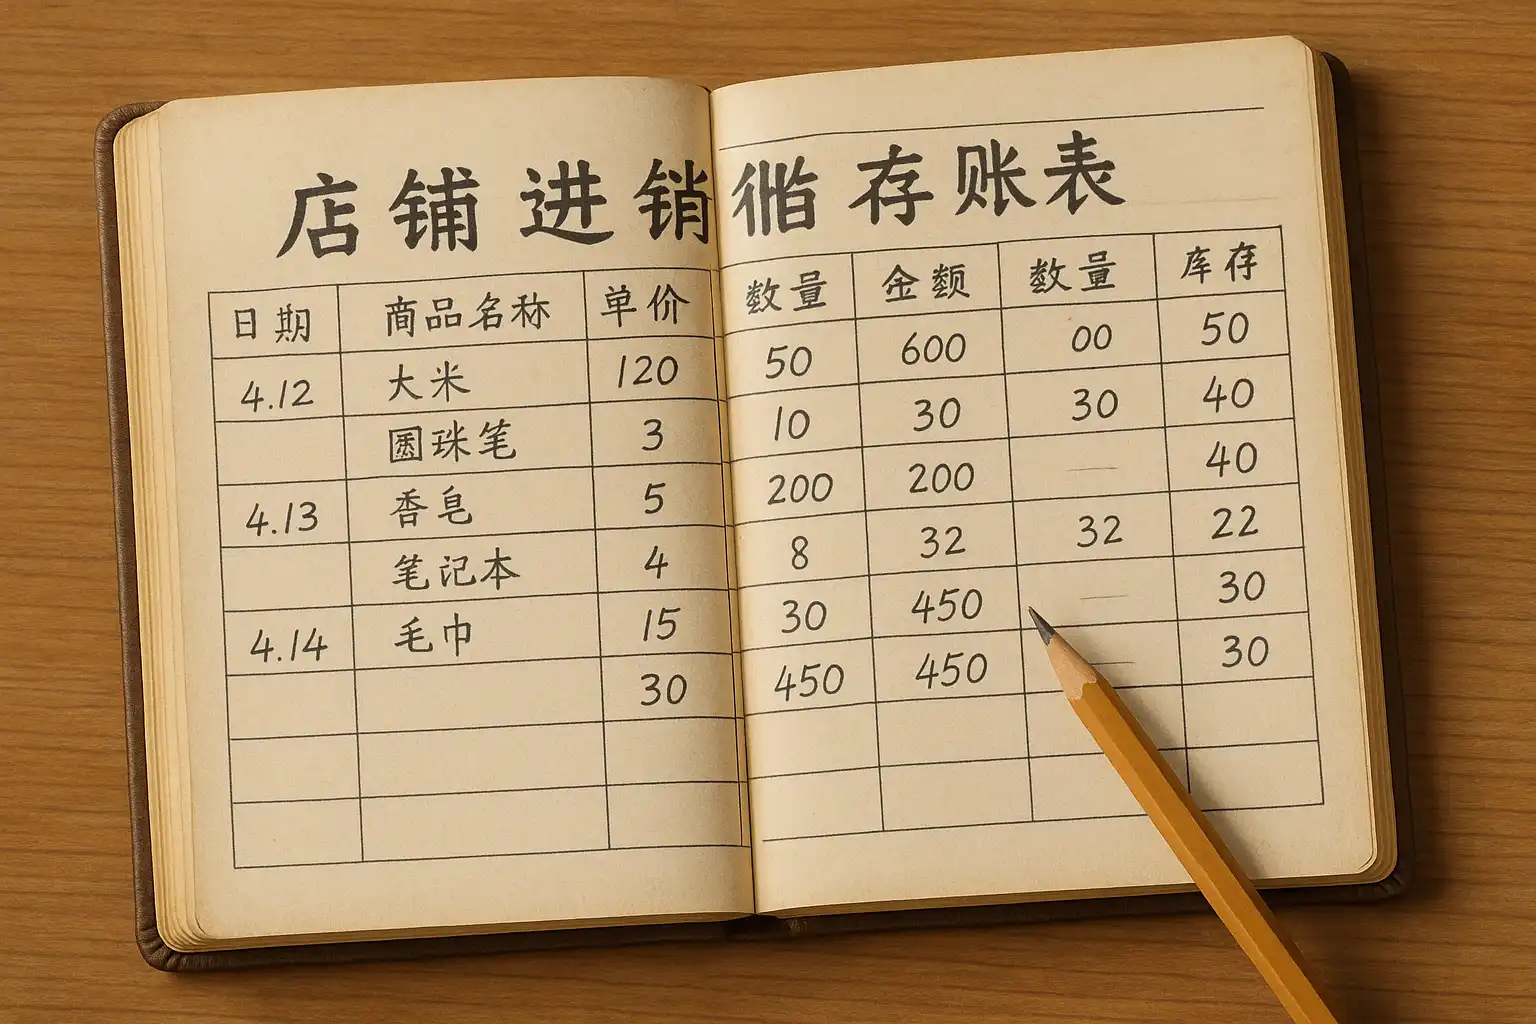 店铺进销 存账表
日期 商品名称 单价 数量 金额 数量 库存
4.12 大米 120 50 600 00 50
圆珠笔 3 10 30 30 40
4.13 香皂 5 200 200 — 40
笔记本 4 8 32 32 22
4.14 毛巾 15 30 450 — 30
30 450 450 — 30